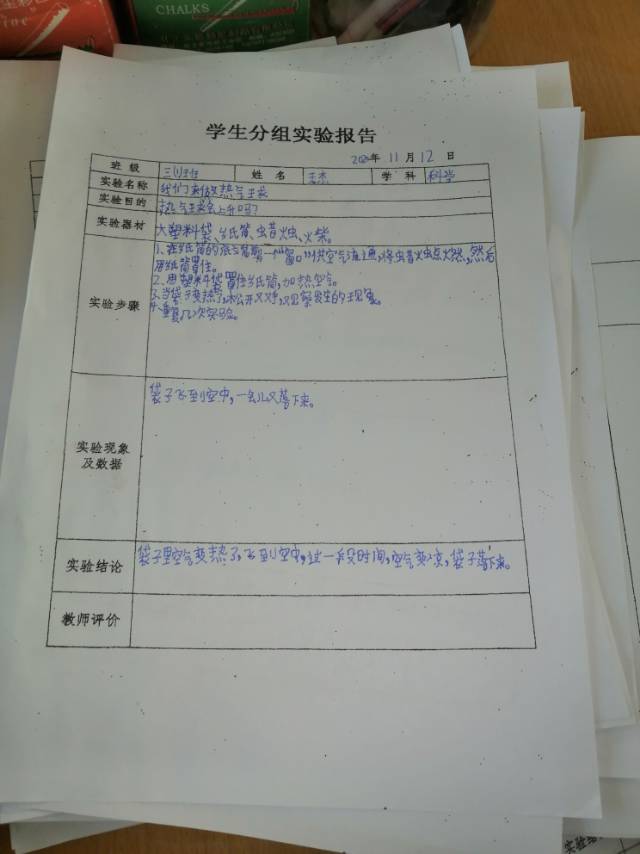 CHALKS
学生分组实验报告
2020年 11月 12日
班级 三(1)班 姓名 王杰 学科 科学
实验名称 我们来做热气球
实验目的 热气球会上升吗?
实验器材 大塑料袋、纸筒、蜡烛、火柴。
1、在纸筒的底部剪一个窗口以供空气流通,将蜡烛点燃,然后
用纸筒罩住。
2、用塑料袋罩住纸筒,加热空气。
实验步骤
3、当袋子变热了,松开双手,观察发生的现象。
4、重复几次实验。
袋子飞到空中,一会儿又落下来。
实验现象
及数据
实验结论 袋子里空气变热了,飞到空中,过一段时间,空气变凉,袋子落下来。
教师评价